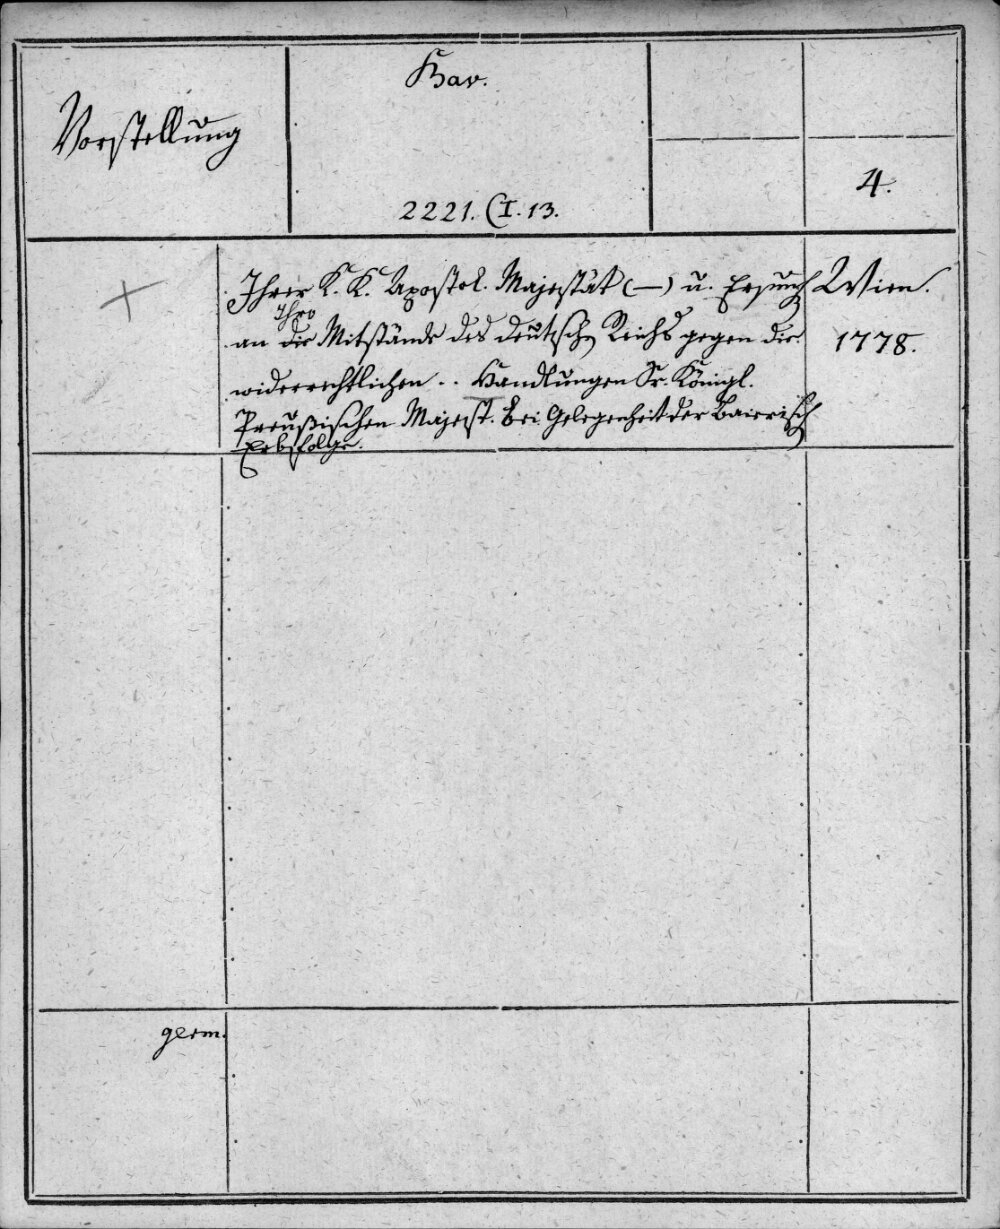 Vorstellung
Bav.
2221. CI. 13.
4.
Ihrer K. K. Apostol. Majestät (—) u. Ersuch
Wien.
Ihro
an die Mitstände des deutsch Reichs gegen die
1778.
widerrechtlichen .. Handlungen Sr. Königl.
Preußischen Majest. bei Gelegenheit der Bairisch
Erbsfolge.
germ.